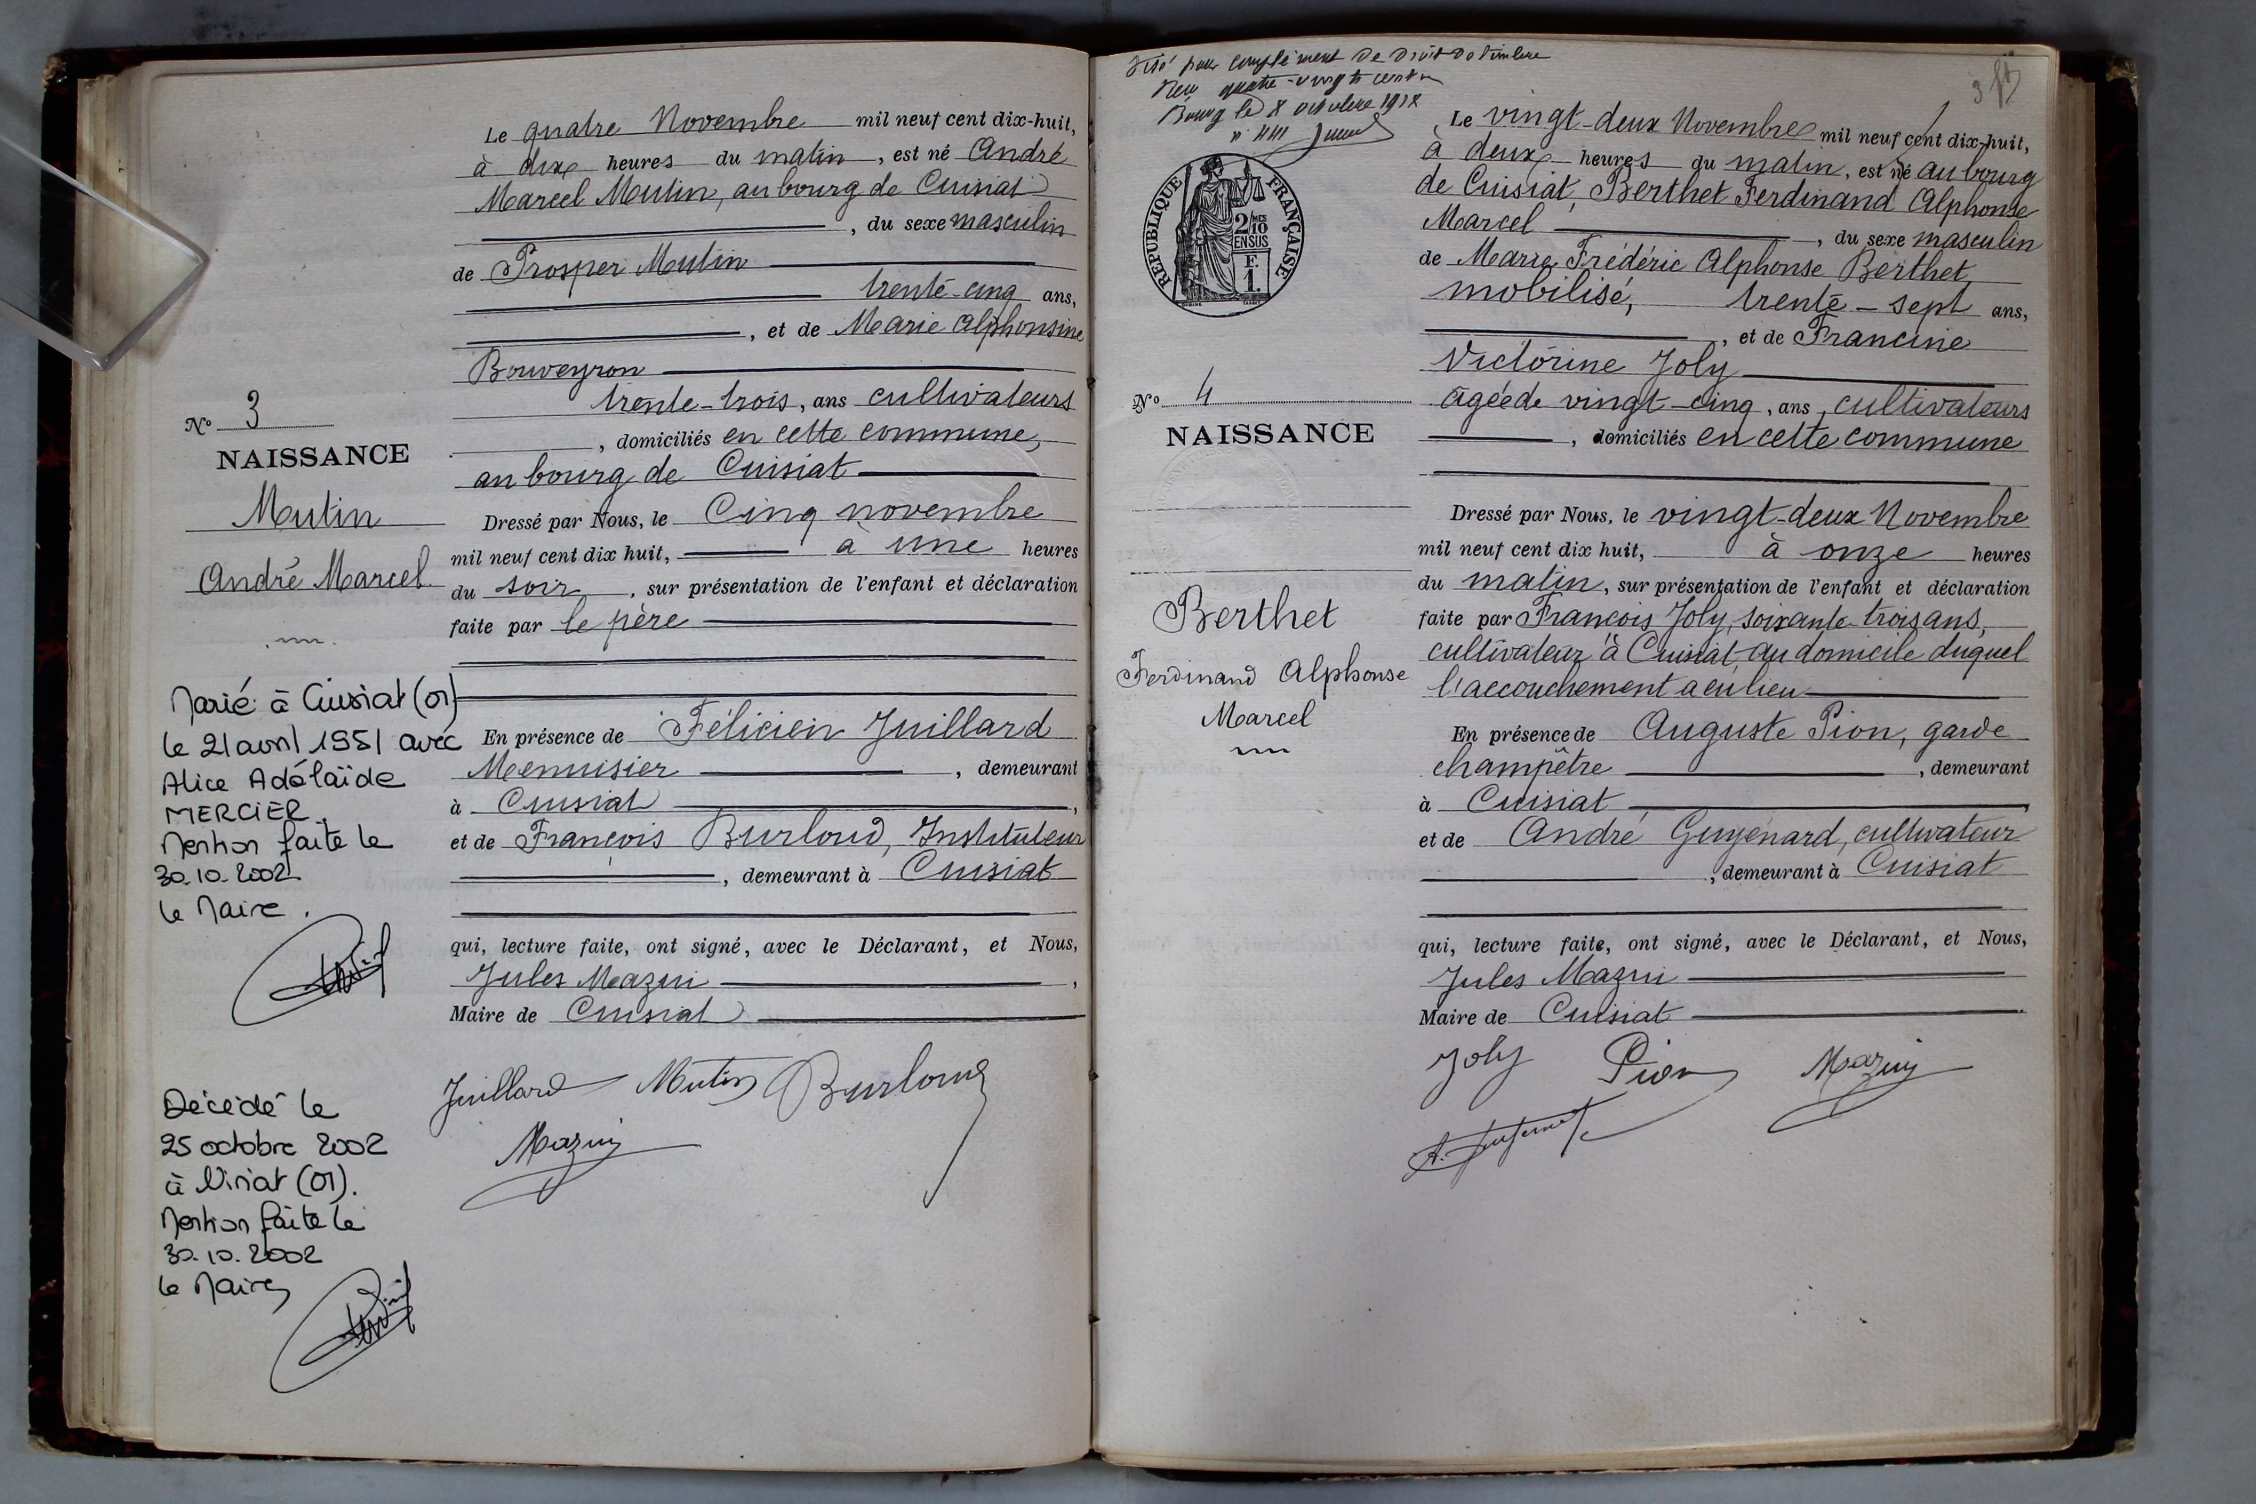 Le quatre Novembre mil neuf cent dix-huit,
à dix heures du matin, est né André
Marcel Mutin, au bourg de Cuisiat
, du sexe masculin
de Prosper Mutin
trente-cinq ans,
, et de Marie Alphonsine
Bouveyron
trente-trois, ans cultivateurs
, domiciliés en cette commune,
au bourg de Cuisiat
Dressé par Nous, le Cinq novembre
mil neuf cent dix huit, à une heures
du soir, sur présentation de l'enfant et déclaration
faite par le père
En présence de Félicien Juillard
Menuisier, demeurant
à Cuisiat,
et de François Burloud, Instituteur
, demeurant à Cuisiat
qui, lecture faite, ont signé, avec le Déclarant, et Nous,
Jules Mazui,
Maire de Cuisiat
Juillard Mutin Burloud
Mazuy
No 3
NAISSANCE
Mutin
André Marcel
Marié à Cuisiat (01)
le 21 avril 1951 avec
Alice Adélaïde
MERCIER.
Mention faite le
30.10.2002
le Maire.
Décédé le
25 octobre 2002
à Viriat (01).
Mention faite le
30.10.2002
le Maire
Visé pour complément de Droit de timbre
Reçu quatre-vingts centimes
Bourg le 8 octobre 1918
RÉPUBLIQUE FRANÇAISE
2/10 MES
EN SUS
F.
1.
No 4
NAISSANCE
Berthet
Ferdinand Alphonse
Marcel
Le vingt-deux Novembre mil neuf cent dix-huit,
à deux heures du matin, est né au bourg
de Cuisiat, Berthet Ferdinand Alphonse
Marcel, du sexe masculin
de Marie Frédéric Alphonse Berthet,
mobilisé, trente-sept ans,
, et de Francine
Victorine Joly
agée de vingt-cinq, ans, cultivateurs
, domiciliés en cette commune
Dressé par Nous, le vingt-deux Novembre
mil neuf cent dix huit, à onze heures
du matin, sur présentation de l'enfant et déclaration
faite par François Joly, soixante-trois ans,
cultivateur à Cuisiat, au domicile duquel
l'accouchement a eu lieu
En présence de Auguste Pion, garde
champêtre, demeurant
à Cuisiat
et de André Guyénard, cultivateur
, demeurant à Cuisiat
qui, lecture faite, ont signé, avec le Déclarant, et Nous,
Jules Mazui
Maire de Cuisiat
Joly Pion Mazuy